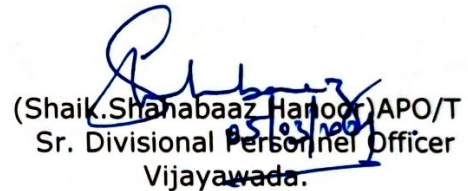 (Shaik.Shahabaaz Hanoor)APO/T
Sr. Divisional Personnel Officer
Vijayawada.